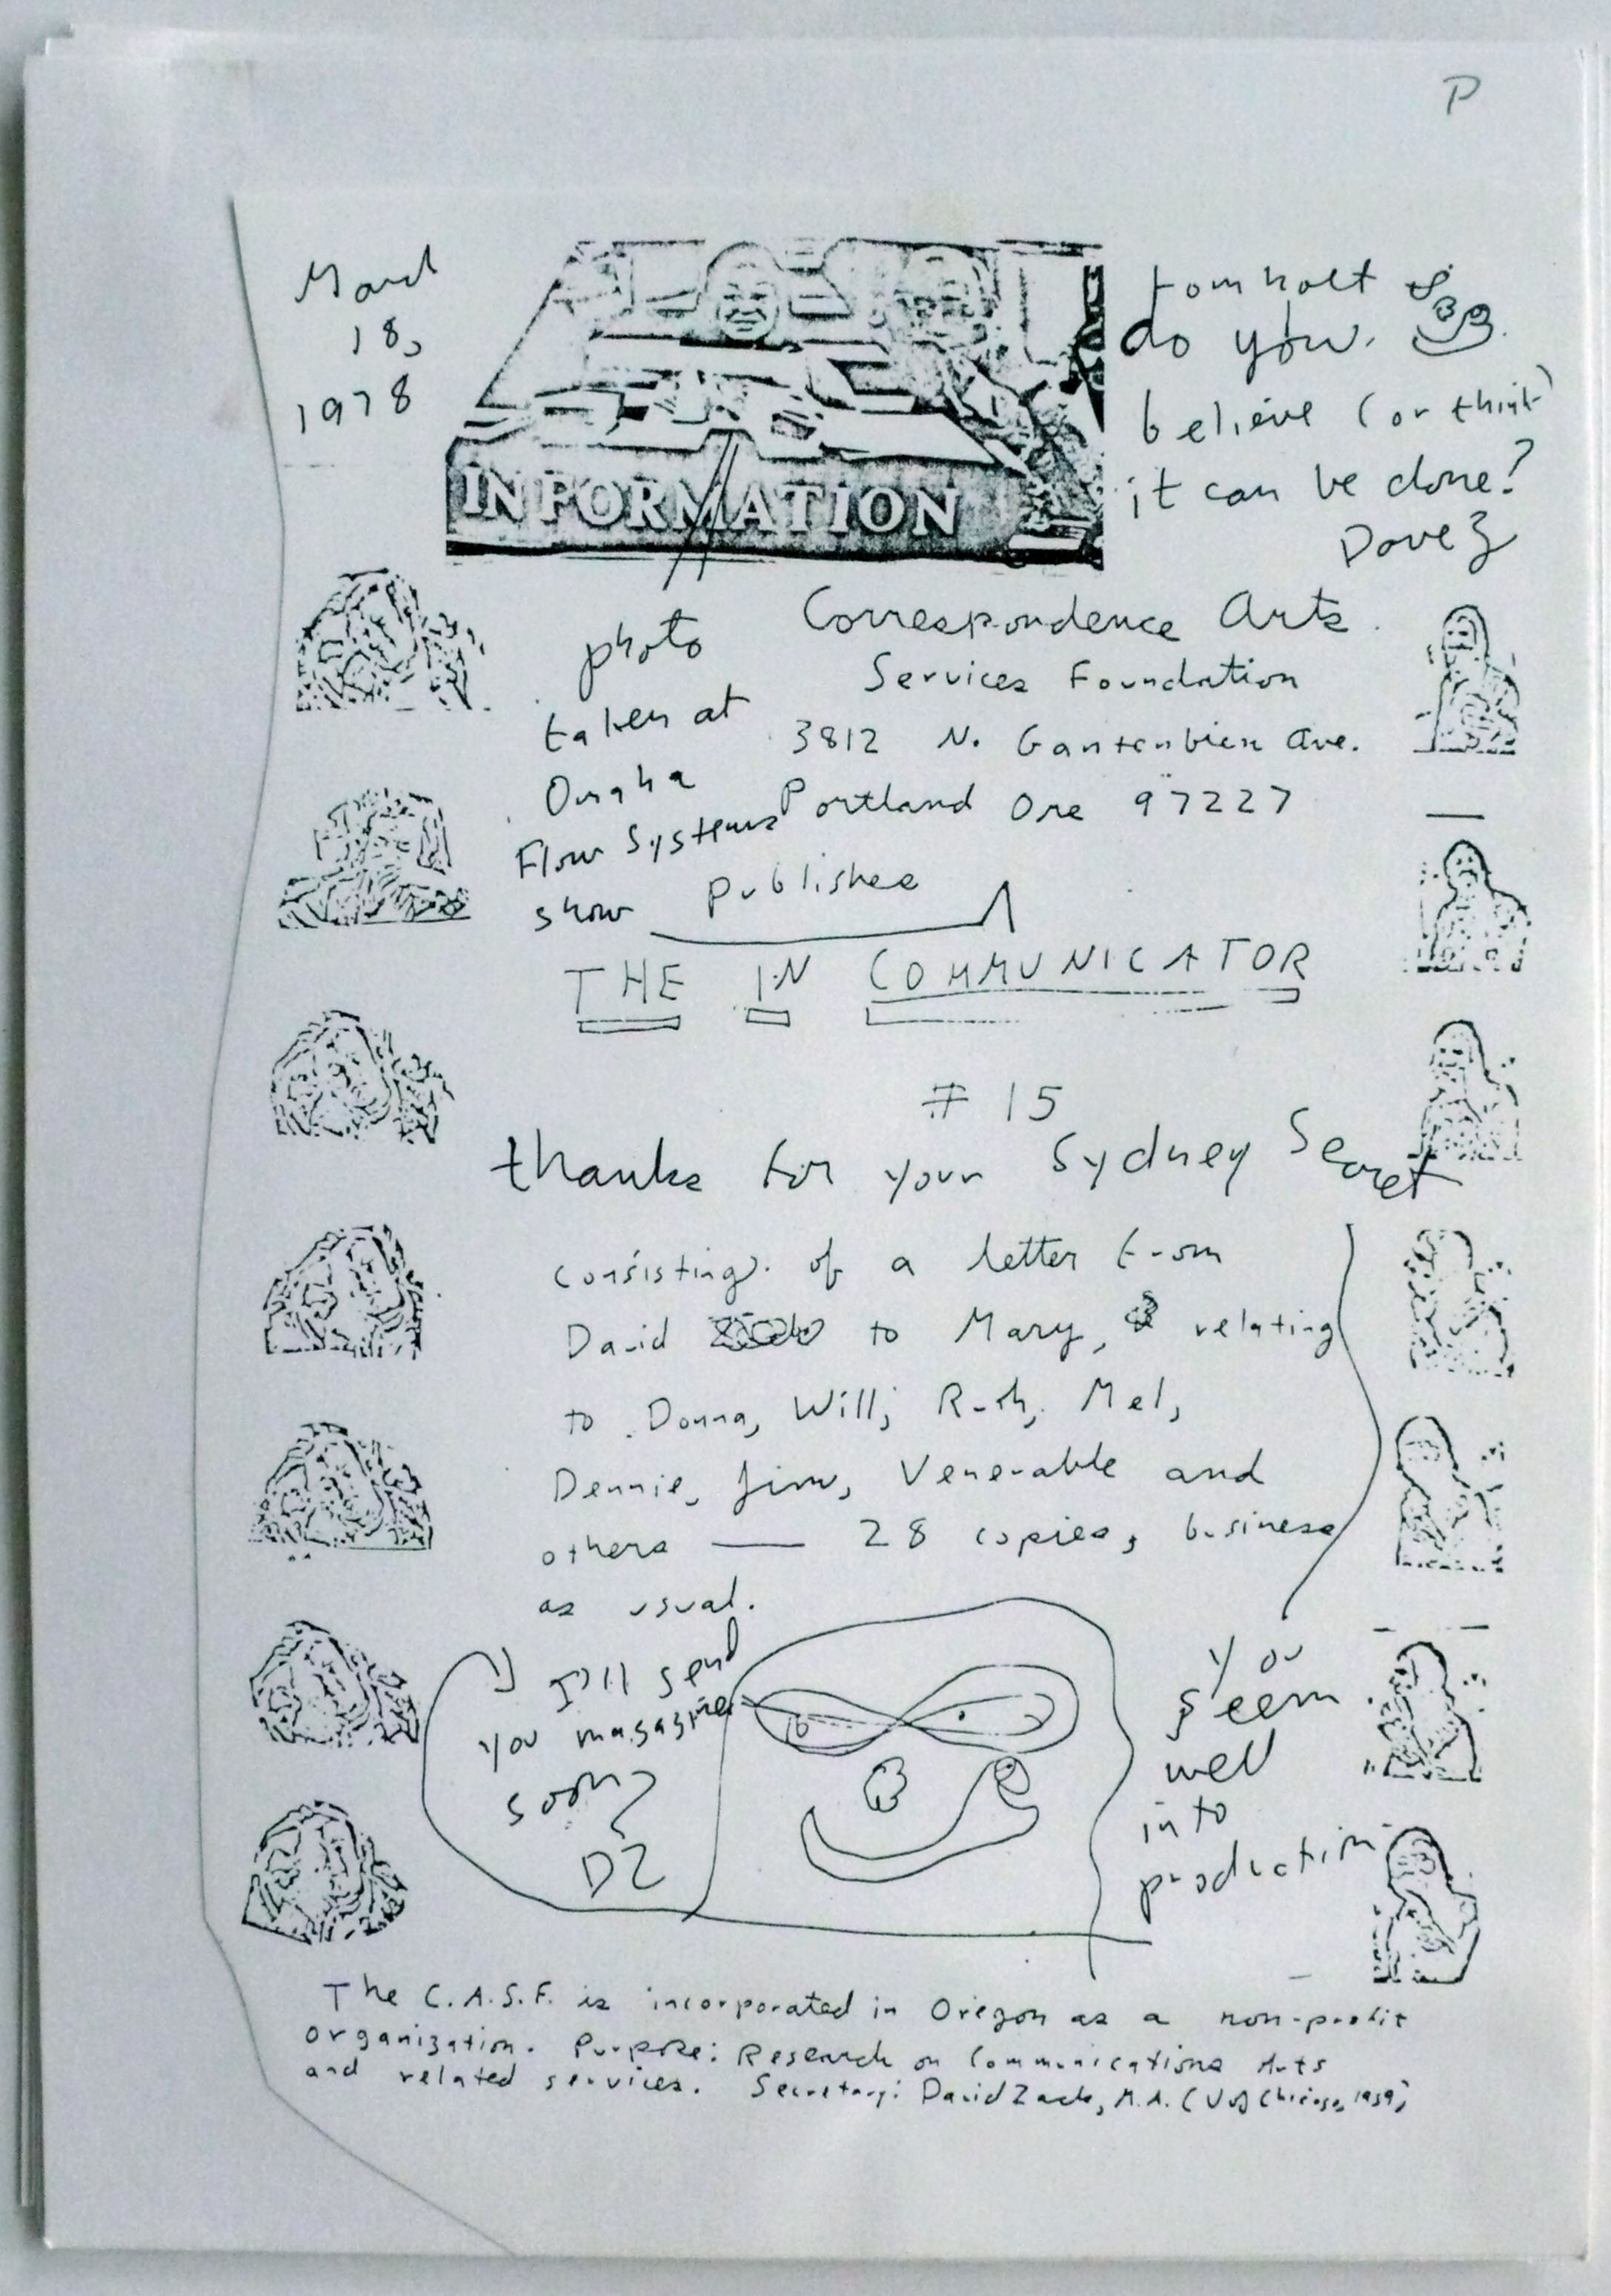 P
March
18,
1978
INFORMATION
tom holt
do you
believe (or think)
it can be done?
Dave Z
photo
taken at
Omaha
Flow Systems
show
Correspondence Arts
Services Foundation
3812 N. Gantenbien Ave.
Portland Ore 97227
publishes
THE IN COMMUNICATOR
# 15
thanks for your Sydney Secret
consisting of a letter from
David to Mary, relating
to Donna, Will, Ruth, Mel,
Dennie, Jim, Venerable and
others — 28 copies, business
as usual.
I'll send
you magazine
soon
DZ
You
seem
well
into
production
The C.A.S.F. is incorporated in Oregon as a non-profit
organization. Purpose: Research on Communications Arts
and related services. Secretary: David Zack, M.A. (U of Chicago, 1959)